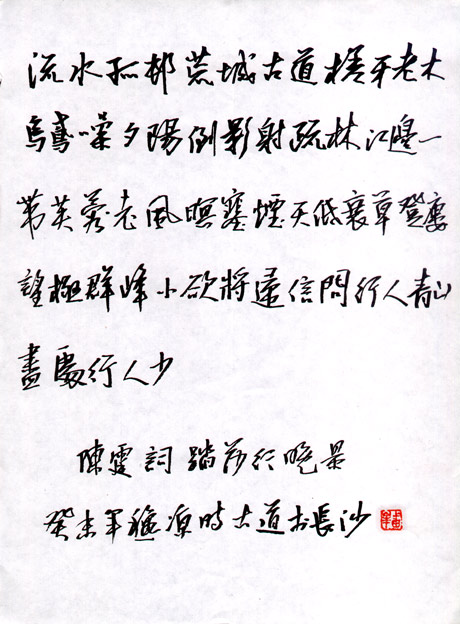 流水孤邨荒城古道槎牙老木
烏鳶噪夕陽倒影射疏林江邊一
帶芙蓉老風暝塞煙天低衰草登樓
望極群峰小欲將遠信問行人青山
盡處行人少
陳霆詞踏莎行晚景
癸未年穐涼時古道书長沙